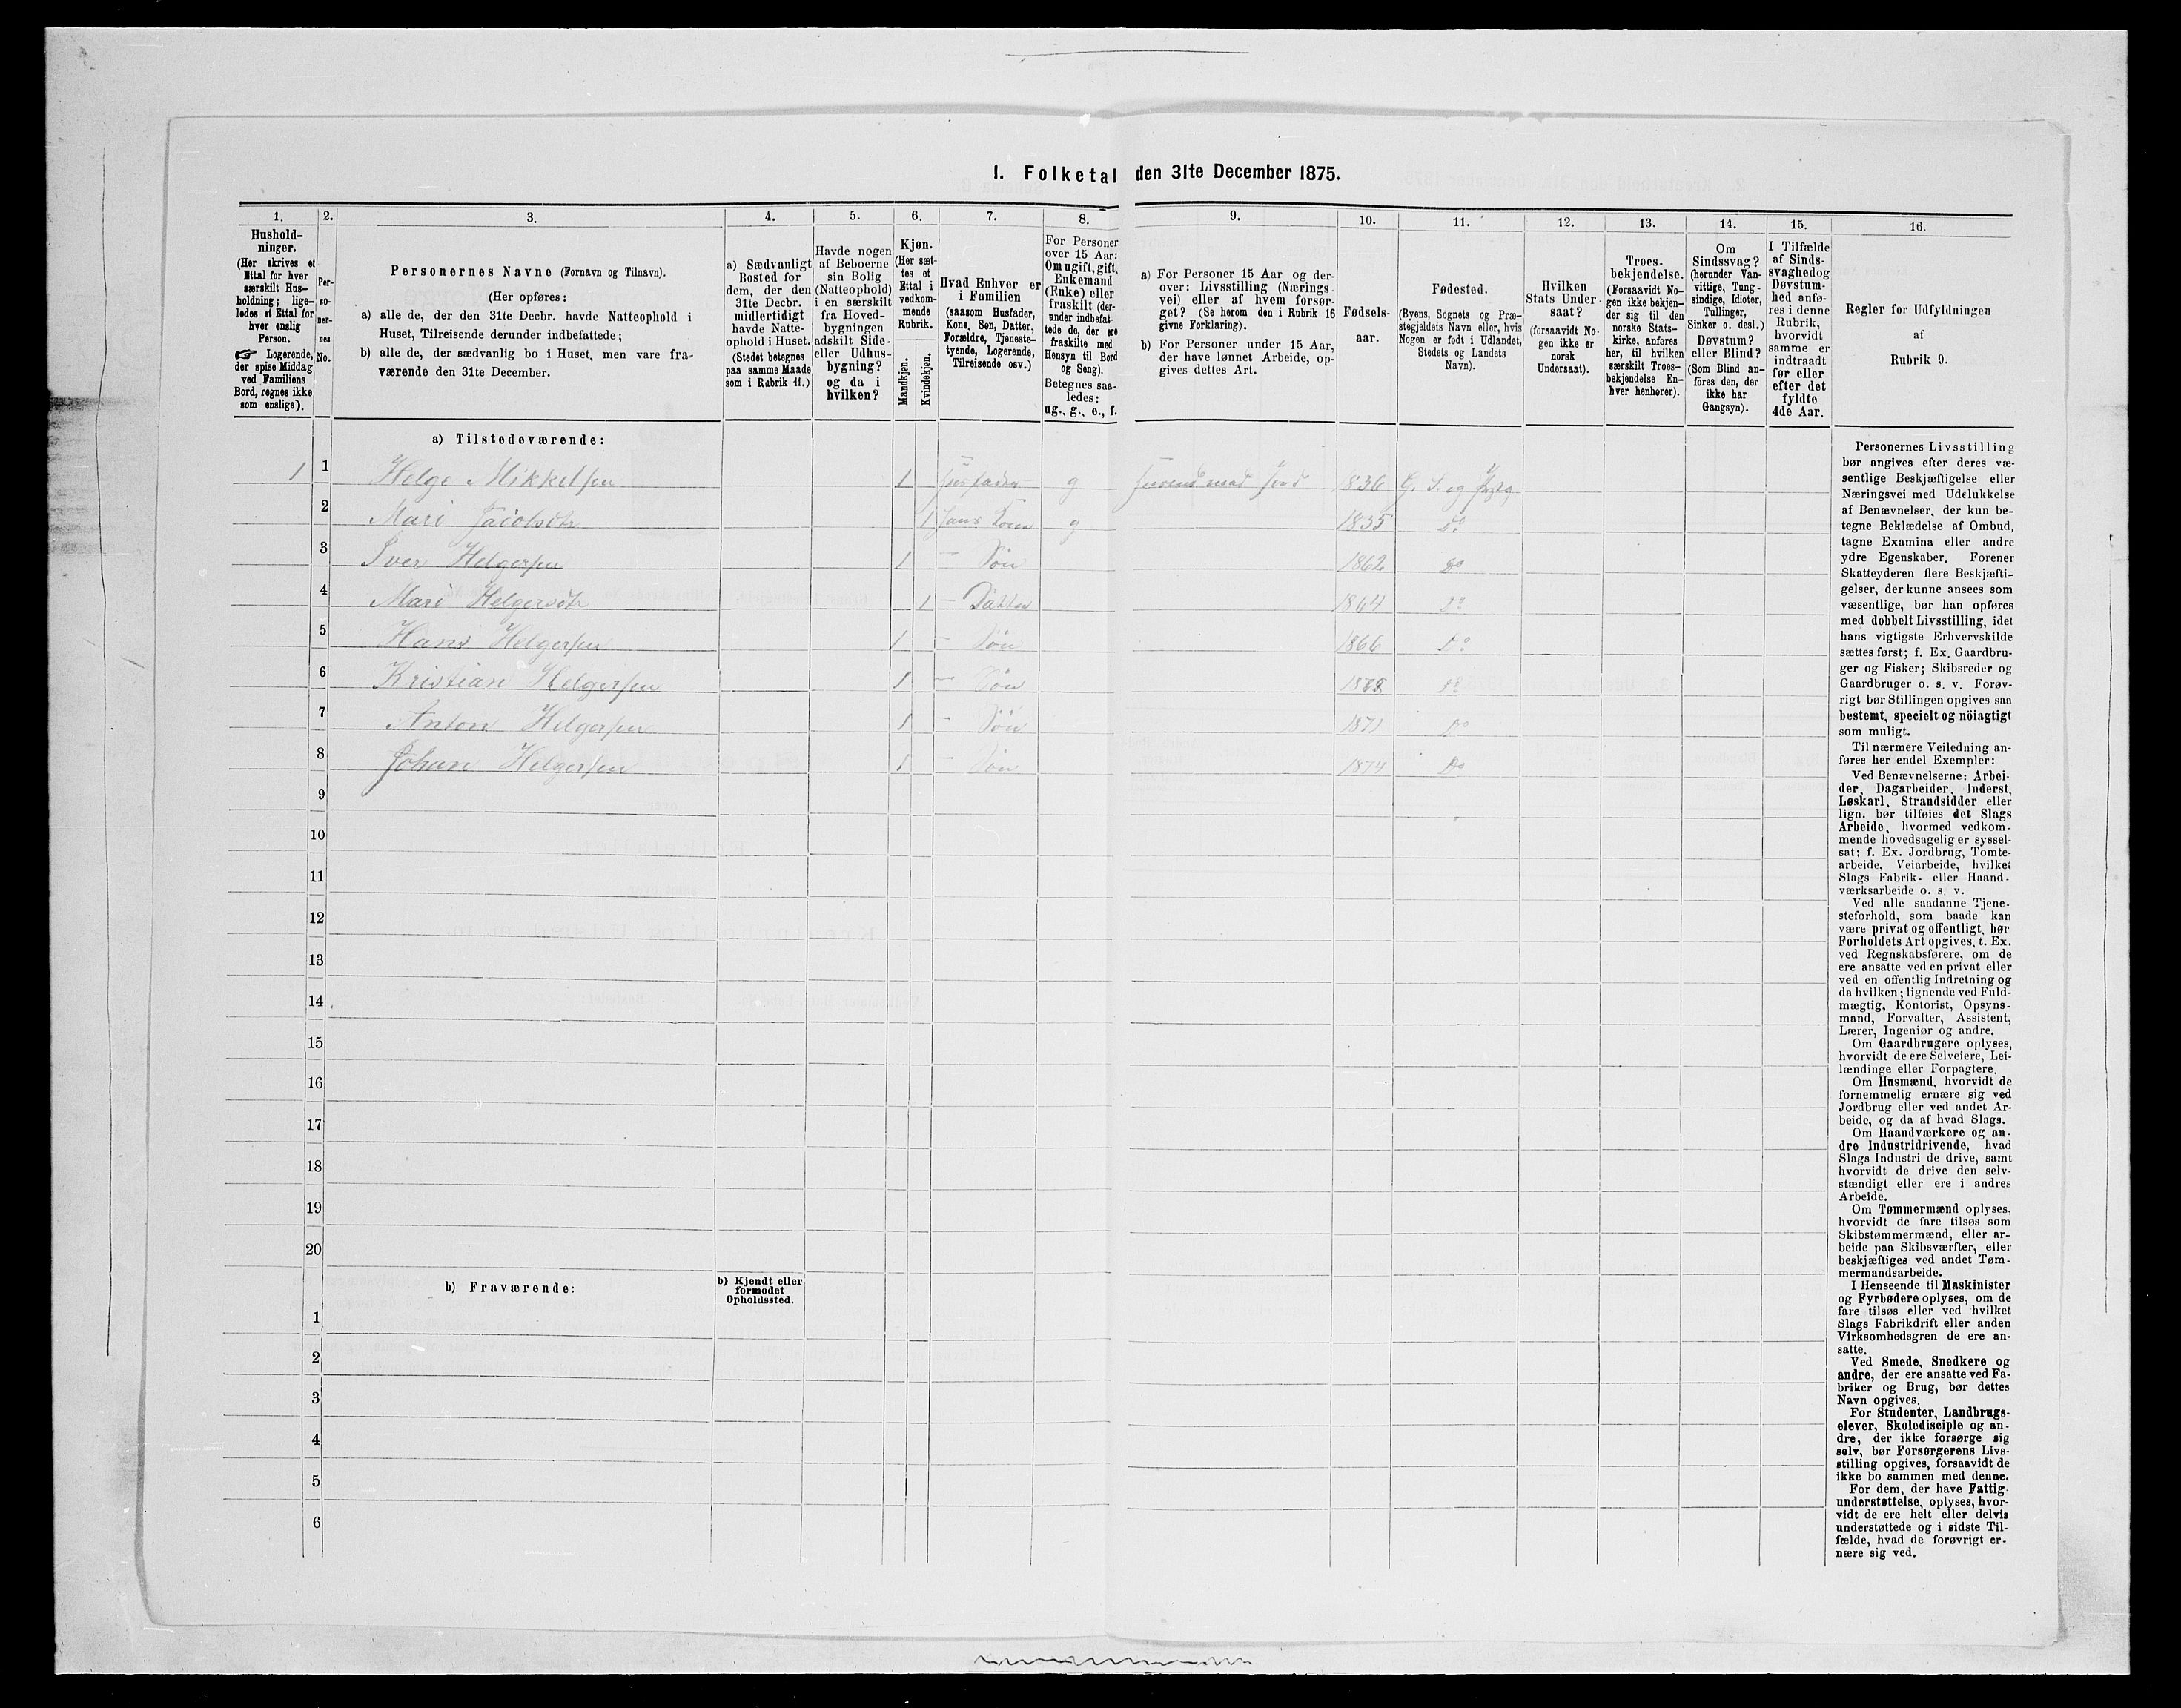 1. Folketal den 31te December 1875.
1. 2. 3. 4. 5. 6. 7. 8. 9. 10. 11. 12. 13. 14. 15. 16.
Hushold-
ninger.
(Her skrives et
Ettal for hver
særskilt Hus-
holdning; lige-
ledes et Ettal for
hver enslig
Person.
☞ Logerende,
der spise Middag
ved Familiens
Bord, regnes ikke
som enslige).
Per-
so-
ner-
nes
No.
Personernes Navne (Fornavn og Tilnavn).
(Her opføres:
a) alle de, der den 31te Decbr. havde Natteophold i
Huset, Tilreisende derunder indbefattede;
b) alle de, der sædvanlig bo i Huset, men vare fra-
værende den 31te December.
a) Sædvanligt
Bosted for
dem, der den
31te Decbr.
midlertidigt
havde Natte-
ophold i Huset.
(Stedet betegnes
paa samme Maade
som i Rubrik 11.)
Havde nogen
af Beboerne
sin Bolig
(Natteophold)
i en særskilt
fra Hoved-
bygningen
adskilt Side-
eller Udhus-
bygning?
og da i
hvilken?
Kjøn.
(Her sæt-
tes et
Ettal i
vedkom-
mende
Rubrik.
Mandkjøn.
Kvindekjøn.
Hvad Enhver er
i Familien
(saasom Husfader,
Kone, Søn, Datter,
Forældre, Tjeneste-
tyende, Logerende,
Tilreisende osv.)
For Personer
over 15 Aar:
Om ugift, gift,
Enkemand
(Enke) eller
fraskilt (der-
under indbefat-
tede de, der ere
fraskilte med
Hensyn til Bord
og Seng).
Betegnes saa-
ledes:
ug., g., e., f.
a) For Personer 15 Aar og der-
over: Livsstilling (Nærings-
vei) eller af hvem forsør-
get? (Se herom den i Rubrik 16
givne Forklaring).
b) For Personer under 15 Aar,
der have lønnet Arbeide, op-
gives dettes Art.
Fødsels-
aar.
Fødested.
(Byens, Sognets og Præ-
stegjeldets Navn eller, hvis
Nogen er født i Udlandet,
Stedets og Landets
Navn).
Hvilken
Stats Under-
saat?
(forsaavidt No-
gen ikke er
norsk
Undersaat).
Troes-
bekjendelse.
(Forsaavidt No-
gen ikke bekjen-
der sig til den
norske Stats-
kirke, anføres
her, til hvilken
særskilt Troes-
bekjendelse En-
hver henhører).
Om
Sindssvag?
(herunder Van-
vittige, Tung-
sindige, Idioter,
Tullinger,
Sinker o. desl.)
Døvstum?
eller Blind?
(Som Blind an-
føres den, der
ikke har
Gangsyn).
I Tilfælde
af Sinds-
svaghed og
Døvstum-
hed anfø-
res i denne
Rubrik,
hvorvidt
samme er
indtraadt
før eller
efter det
fyldte
4de Aar.
Regler for Udfyldningen
af
Rubrik 9.
a) Tilstedeværende:
1 1 Helge Mikkelsen 1 Husfader g Husmd med Jord 1836
2 Mari Jacobsdtr 1 Hans Kone g 1835 Do
3 Iver Helgersen 1 – Søn 1862 Do
4 Mari Helgersdtr 1 – Datter 1864 Do
5 Hans Helgersen 1 – Søn 1866 Do
6 Kristian Helgersen 1 – Søn Do
7 Anton Helgersen 1 – Søn 1871 Do
8 Johan Helgersen 1 – Søn 1874 Do
9
10
11
12
13
14
15
16
17
18
19
20
b) Fraværende:
b) Kjendt eller
formodet
Opholdssted.
1
2
3
4
5
6
Personernes Livsstilling
bør angives efter deres væ-
sentlige Beskjæftigelse eller
Næringsvei med Udelukkelse
af Benævnelser, der kun be-
tegne Beklædelse af Ombud,
tagne Examina eller andre
ydre Egenskaber. Forener
Skatteyderen flere Beskjæfti-
gelser, der kunne ansees som
væsentlige, bør han opføres
med dobbelt Livsstilling, idet
hans vigtigste Erhvervskilde
sættes først; f. Ex. Gaardbru-
ger og Fisker; Skibsreder og
Gaardbruger o. s. v. Forøv-
rigt bør Stillingen opgives saa
bestemt, specielt og nöiagtigt
som muligt.
Til nærmere Veiledning an-
føres her endel Exempler:
Ved Benævnelserne: Arbei-
der, Dagarbeider, Inderst,
Løskarl, Strandsidder eller
lign. bør tilføies det Slags
Arbeide, hvormed vedkom-
mende hovedsagelig er syssel-
sat; f. Ex. Jordbrug, Tomte-
arbeide, Veiarbeide, hvilket
Slags Fabrik- eller Haand-
værksarbeide o. s. v.
Ved alle saadanne Tjene-
steforhold, som baade kan
være privat og offentligt, bør
Forholdets Art opgives, t. Ex.
ved Regnskabsførere, om de
ere ansatte ved en privat eller
ved en offentlig Indretning og
da hvilken; lignende ved Fuld-
mægtig, Kontorist, Opsyns-
mand, Forvalter, Assistent,
Lærer, Ingeniør og andre.
Om Gaardbrugere oplyses,
hvorvidt de ere Selveiere, Lei-
lændinge eller Forpagtere.
Om Husmænd, hvorvidt de
fornemmelig ernære sig ved
Jordbrug eller ved andet Ar-
beide, og da af hvad Slags.
Om Haandværkere og an-
dre Industridrivende, hvad
Slags Industri de drive, samt
hvorvidt de drive den selv-
stændigt eller ere i andres
Arbeide.
Om Tømmermænd oplyses,
hvorvidt de fare tilsøs som
Skibstømmermænd, eller ar-
beide paa Skibsværfter, eller
beskjæftiges ved andet Tøm-
mermandsarbeide.
I Henseende til Maskinister
og Fyrbødere oplyses, om de
fare tilsøs eller ved hvilket
Slags Fabrikdrift eller anden
Virksomhedsgren de ere an-
satte.
Ved Smede, Snedkere og
andre, der ere ansatte ved Fa-
briker og Brug, bør dettes
Navn opgives.
For Studenter, Landbrugs-
elever, Skoledisciple og an-
dre, der ikke forsørge sig
selv, bør Forsørgerens Livs-
stilling opgives, forsaavidt de
ikke bo sammen med denne.
For dem, der have Fattig-
understøttelse, oplyses, hvor-
vidt de ere helt eller delvis
understøttede og i sidste Til-
fælde, hvad de forøvrigt er-
nære sig ved.